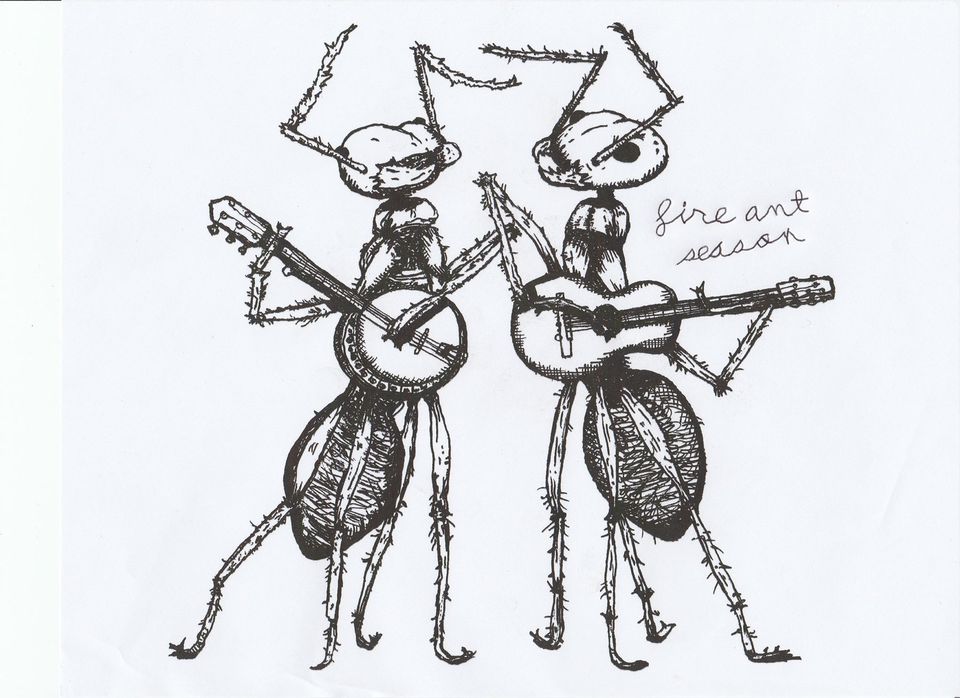 fire ant
season